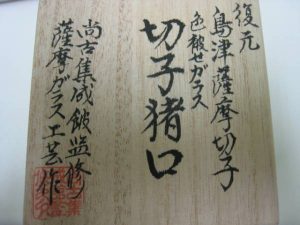 復元
島津薩摩切子
色被せガラス
切子猪口
尚古集成館監修
薩摩ガラス工芸作